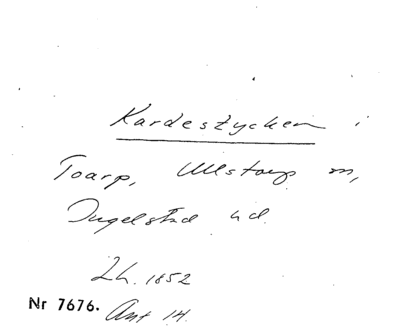 Kardestycken i
Toarp, Ullstorps sn,
Ingelstad hd.
Lh. 1852
Nr 7676. Ant 14.